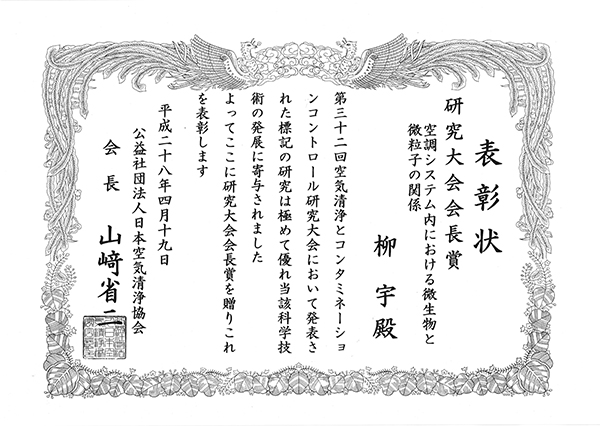 表彰状
研究大会会長賞
空調システム内における微生物と
微粒子の関係
柳宇殿
第三十二回空気清浄とコンタミネーショ
ンコントロール研究大会において発表さ
れた標記の研究は極めて優れ当該科学技
術の発展に寄与されました
よってここに研究大会会長賞を贈りこれ
を表彰します
平成二十八年四月十九日
公益社団法人日本空気清浄協会
会長 山﨑省二